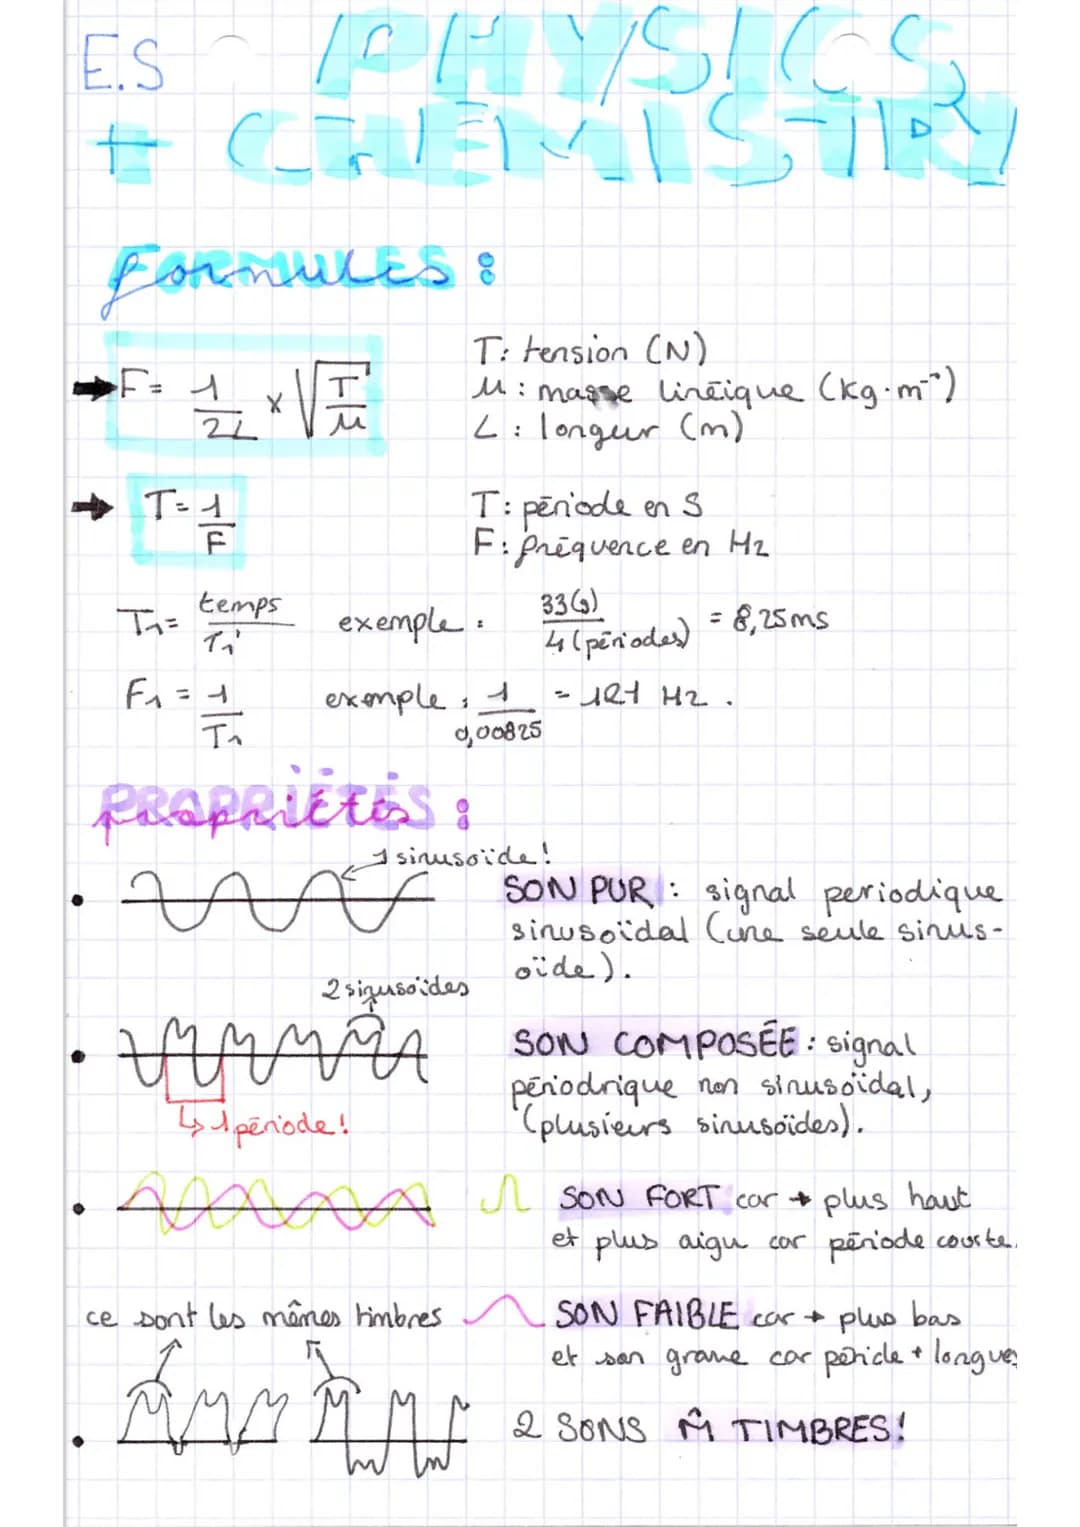 E.S PHYSICS
+ CHEMISTRY
FORMULES :
➡ F = 1/2L × √T/μ
T : tension (N)
μ : masse linéique (kg.m⁻¹)
L : longeur (m)
➡ T = 1/F
T : période en S
F : fréquence en Hz
T₁ = temps/T₁' exemple : 33(s)/4 (périodes) = 8,25ms
F₁ = 1/T₁ exemple : 1/0,00825 = 121 Hz.
PROPRIÉTÉS :
1 sinusoïde !
• SON PUR : signal periodique
sinusoïdal (une seule sinus-
oïde).
2 sinusoïdes
• SON COMPOSÉE : signal
périodrique non sinusoïdal,
(plusieurs sinusoïdes).
↳ 1 période !
• SON FORT car → plus haut
et plus aigu car période courte.
ce sont les mêmes timbres
SON FAIBLE car → plus bas
et son grave car péride + longues
• 2 SONS M̂ TIMBRES !